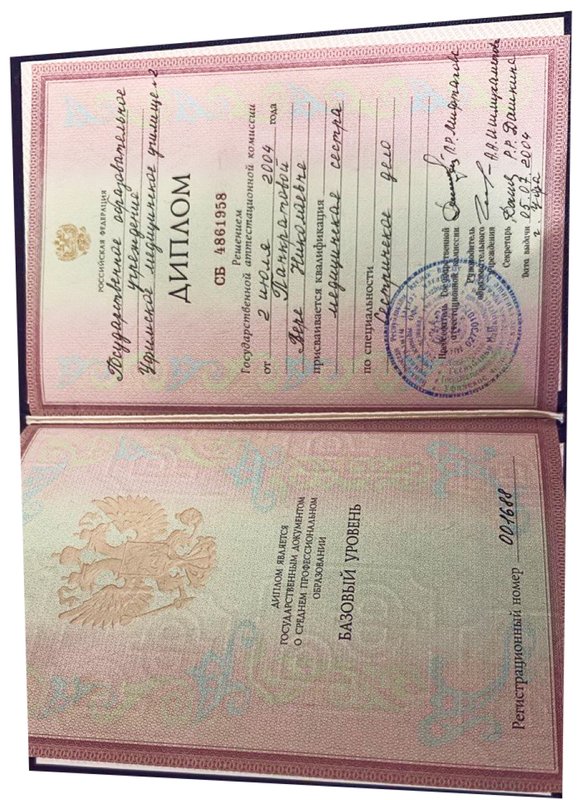 ДИПЛОМ ЯВЛЯЕТСЯ
ГОСУДАРСТВЕННЫМ ДОКУМЕНТОМ
О СРЕДНЕМ ПРОФЕССИОНАЛЬНОМ
ОБРАЗОВАНИИ
БАЗОВЫЙ УРОВЕНЬ
Регистрационный номер 001688
РОССИЙСКАЯ ФЕДЕРАЦИЯ
Государственное образовательное
учреждение
Уфимское медицинское училище-2
ДИПЛОМ
СБ 4861958
Решением
Государственной аттестационной комиссии
от 2 июля 2004 года
Панкратовой
Вере Николаевне
присваивается квалификация
медицинская сестра
по специальности
Сестринское дело
Председатель Государственной
аттестационной комиссии
Руководитель
образовательного
учреждения
Секретарь Р.Р. Дашкина
Дата выдачи 05.07.2004
г. Уфа